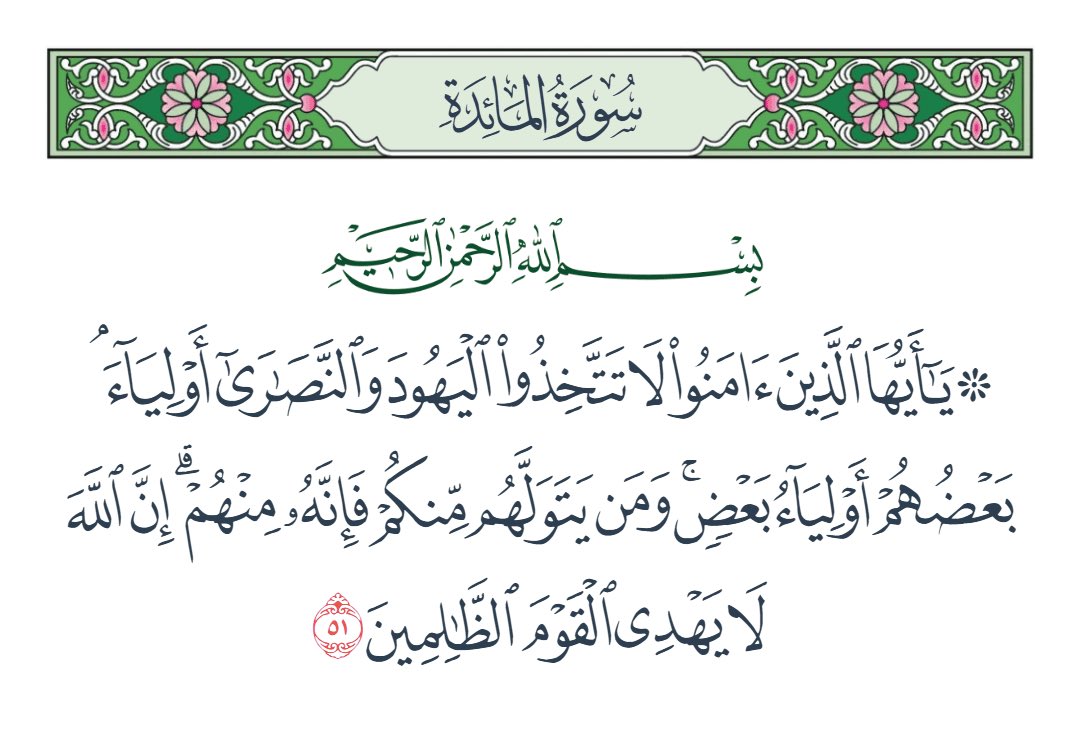 سُورَةُ المَائِدَةِ
بِسْمِ ٱللَّهِ ٱلرَّحْمَٰنِ ٱلرَّحِيمِ
۞ يَٰٓأَيُّهَا ٱلَّذِينَ ءَامَنُوا۟ لَا تَتَّخِذُوا۟ ٱلْيَهُودَ وَٱلنَّصَٰرَىٰٓ أَوْلِيَآءَ ۘ
بَعْضُهُمْ أَوْلِيَآءُ بَعْضٍ ۚ وَمَن يَتَوَلَّهُم مِّنكُمْ فَإِنَّهُۥ مِنْهُمْ ۗ إِنَّ ٱللَّهَ
لَا يَهْدِى ٱلْقَوْمَ ٱلظَّٰلِمِينَ ٥١